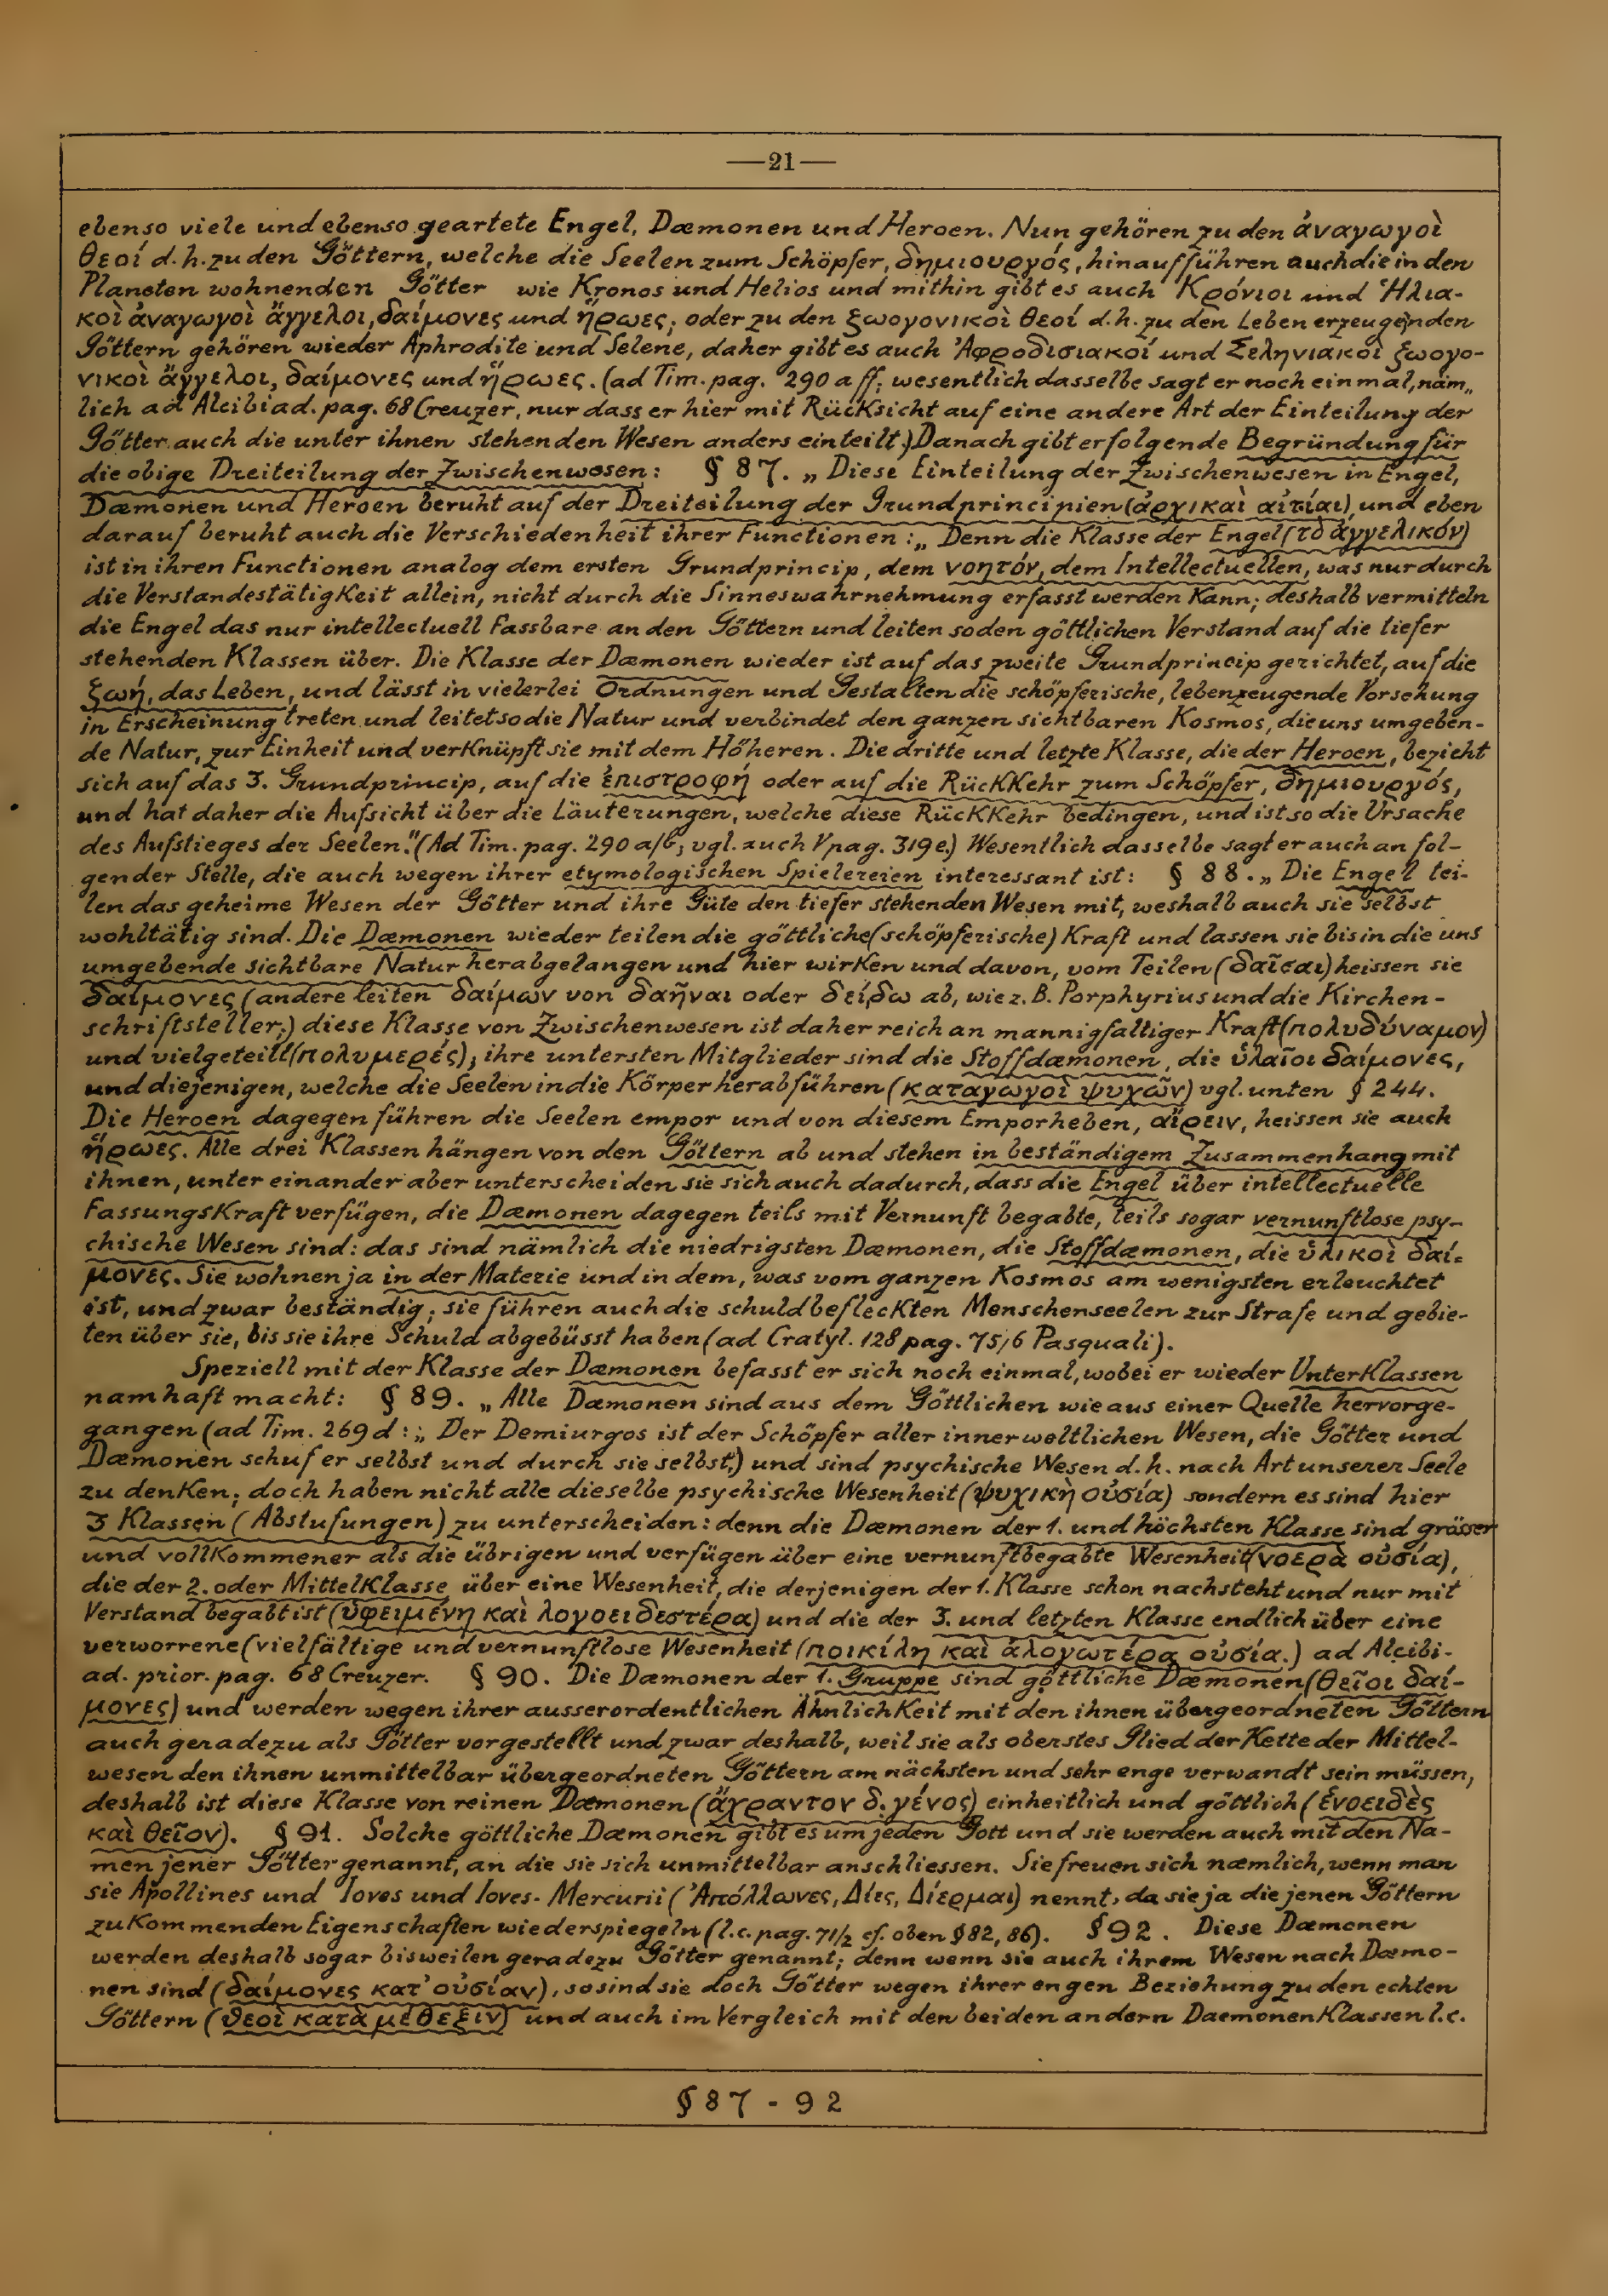 —21—
ebenso viele und ebenso geartete Engel, Dæmonen und Heroen. Nun gehören zu den ἀναγωγοὶ
θεοί d.h. zu den Göttern, welche die Seelen zum Schöpfer, δημιουργός, hinaufführen auch die in den
Planeten wohnenden Götter wie Kronos und Helios und mithin gibt es auch Κρόνιοι und Ἡλια-
κοὶ ἀναγωγοὶ ἄγγελοι, δαίμονες und ἥρωες; oder zu den ζωογονικοὶ θεοί d.h. zu den Leben erzeugenden
Göttern gehören wieder Aphrodite und Selene, daher gibt es auch Ἀφροδισιακοί und Σεληνιακοὶ ζωογο-
νικοὶ ἄγγελοι, δαίμονες und ἥρωες. (ad Tim. pag. 290 a ff; wesentlich dasselbe sagt er noch einmal, näm„
lich ad Alcibiad. pag. 68 Creuzer, nur dass er hier mit Rücksicht auf eine andere Art der Einteilung der
Götter auch die unter ihnen stehenden Wesen anders einteilt.) Danach gibt er folgende Begründung für
die obige Dreiteilung der Zwischenwesen: § 87. „ Diese Einteilung der Zwischenwesen in Engel,
Dæmonen und Heroen beruht auf der Dreiteilung der Grundprincipien (ἀρχικαὶ αἰτίαι), und eben
darauf beruht auch die Verschiedenheit ihrer Functionen :„ Denn die Klasse der Engel (τὸ ἀγγελικόν)
ist in ihren Functionen analog dem ersten Grundprincip, dem νοητόν, dem Intellectuellen, was nur durch
die Verstandestätigkeit allein, nicht durch die Sinneswahrnehmung erfasst werden kann; deshalb vermitteln
die Engel das nur intellectuell Fassbare an den Göttern und leiten so den göttlichen Verstand auf die tiefer
stehenden Klassen über. Die Klasse der Dæmonen wieder ist auf das zweite Grundprincip gerichtet, auf die
ζωή, das Leben, und lässt in vielerlei Ordnungen und Gestalten die schöpferische, lebenzeugende Vorsehung
in Erscheinung treten und leitet so die Natur und verbindet den ganzen sichtbaren Kosmos, die uns umgeben-
de Natur, zur Einheit und verknüpft sie mit dem Höheren. Die dritte und letzte Klasse, die der Heroen, bezieht
sich auf das 3. Grundprincip, auf die ἐπιστροφή oder auf die Rückkehr zum Schöpfer, δημιουργός,
und hat daher die Aufsicht über die Läuterungen, welche diese Rückkehr bedingen, und ist so die Ursache
des Aufstieges der Seelen." (Ad Tim. pag. 290 a/b; vgl. auch V pag. 319 e.) Wesentlich dasselbe sagt er auch an fol-
gender Stelle, die auch wegen ihrer etymologischen Spielereien interessant ist: § 88. „ Die Engel tei-
len das geheime Wesen der Götter und ihre Güte den tiefer stehenden Wesen mit, weshalb auch sie selbst
wohltätig sind. Die Dæmonen wieder teilen die göttliche (schöpferische) Kraft und lassen sie bis in die uns
umgebende sichtbare Natur herabgelangen und hier wirken und davon, vom Teilen (δαῖσαι) heissen sie
δαίμονες (andere leiten δαίμων von δαῆναι oder δείδω ab, wie z.B. Porphyrius und die Kirchen-
schriftsteller;) diese Klasse von Zwischenwesen ist daher reich an mannigfaltiger Kraft (πολυδύναμον)
und vielgeteilt (πολυμερές); ihre untersten Mitglieder sind die Stoffdæmonen, die ὑλαῖοι δαίμονες,
und diejenigen, welche die Seelen in die Körper herabführen (καταγωγοὶ ψυχῶν) vgl. unten § 244.
Die Heroen dagegen führen die Seelen empor und von diesem Emporheben, αἴρειν, heissen sie auch
ἥρωες. Alle drei Klassen hängen von den Göttern ab und stehen in beständigem Zusammenhang mit
ihnen, unter einander aber unterscheiden sie sich auch dadurch, dass die Engel über intellectuelle
Fassungskraft verfügen, die Dæmonen dagegen teils mit Vernunft begabte, teils sogar vernunftlose psy-
chische Wesen sind: das sind nämlich die niedrigsten Dæmonen, die Stoffdæmonen, die ὑλικοὶ δαί-
μονες. Sie wohnen ja in der Materie und in dem, was vom ganzen Kosmos am wenigsten erleuchtet
ist, und zwar beständig; sie führen auch die schuldbefleckten Menschenseelen zur Strafe und gebie-
ten über sie, bis sie ihre Schuld abgebüsst haben (ad Cratyl. 128 pag. 75/6 Pasquali).
Speziell mit der Klasse der Dæmonen befasst er sich noch einmal, wobei er wieder Unterklassen
namhaft macht: § 89. „ Alle Dæmonen sind aus dem Göttlichen wie aus einer Quelle hervorge-
gangen (ad Tim. 269 d :„ Der Demiurgos ist der Schöpfer aller innerweltlichen Wesen, die Götter und
Dæmonen schuf er selbst und durch sie selbst;) und sind psychische Wesen d.h. nach Art unserer Seele
zu denken; doch haben nicht alle dieselbe psychische Wesenheit (ψυχικὴ οὐσία) sondern es sind hier
3 Klassen (Abstufungen) zu unterscheiden: denn die Dæmonen der 1. und höchsten Klasse sind grösser
und vollkommener als die übrigen und verfügen über eine vernunftbegabte Wesenheit (νοερὰ οὐσία),
die der 2. oder Mittelklasse über eine Wesenheit, die derjenigen der 1. Klasse schon nachsteht und nur mit
Verstand begabt ist (ὑφειμένη καὶ λογοειδεστέρα) und die der 3. und letzten Klasse endlich über eine
verworrene (vielfältige und vernunftlose Wesenheit (ποικίλη καὶ ἀλογωτέρα οὐσία.) ad Alcibi-
ad. prior. pag. 68 Creuzer. § 90. Die Dæmonen der 1. Gruppe sind göttliche Dæmonen (θεῖοι δαί-
μονες) und werden wegen ihrer ausserordentlichen Ähnlichkeit mit den ihnen übergeordneten Göttern
auch geradezu als Götter vorgestellt und zwar deshalb, weil sie als oberstes Glied der Kette der Mittel-
wesen den ihnen unmittelbar übergeordneten Göttern am nächsten und sehr enge verwandt sein müssen,
deshalb ist diese Klasse von reinen Dæmonen (ἄχραντον δ. γένος) einheitlich und göttlich (ἑνοειδὲς
καὶ θεῖον). § 91. Solche göttliche Dæmonen gibt es um jeden Gott und sie werden auch mit den Na-
men jener Götter genannt, an die sie sich unmittelbar anschliessen. Sie freuen sich næmlich, wenn man
sie Apollines und Ioves und Ioves-Mercurii (Ἀπόλλωνες, Δίες, Δίερμαι) nennt, da sie ja die jenen Göttern
zukommenden Eigenschaften wiederspiegeln (l.c. pag. 71/2 cf. oben § 82, 86). § 92. Diese Dæmonen
werden deshalb sogar bisweilen geradezu Götter genannt; denn wenn sie auch ihrem Wesen nach Dæmo-
nen sind (δαίμονες κατ' οὐσίαν), so sind sie doch Götter wegen ihrer engen Beziehung zu den echten
Göttern (θεοὶ κατὰ μέθεξιν) und auch im Vergleich mit den beiden andern Daemonenklassen l.c.
§ 87 - 92